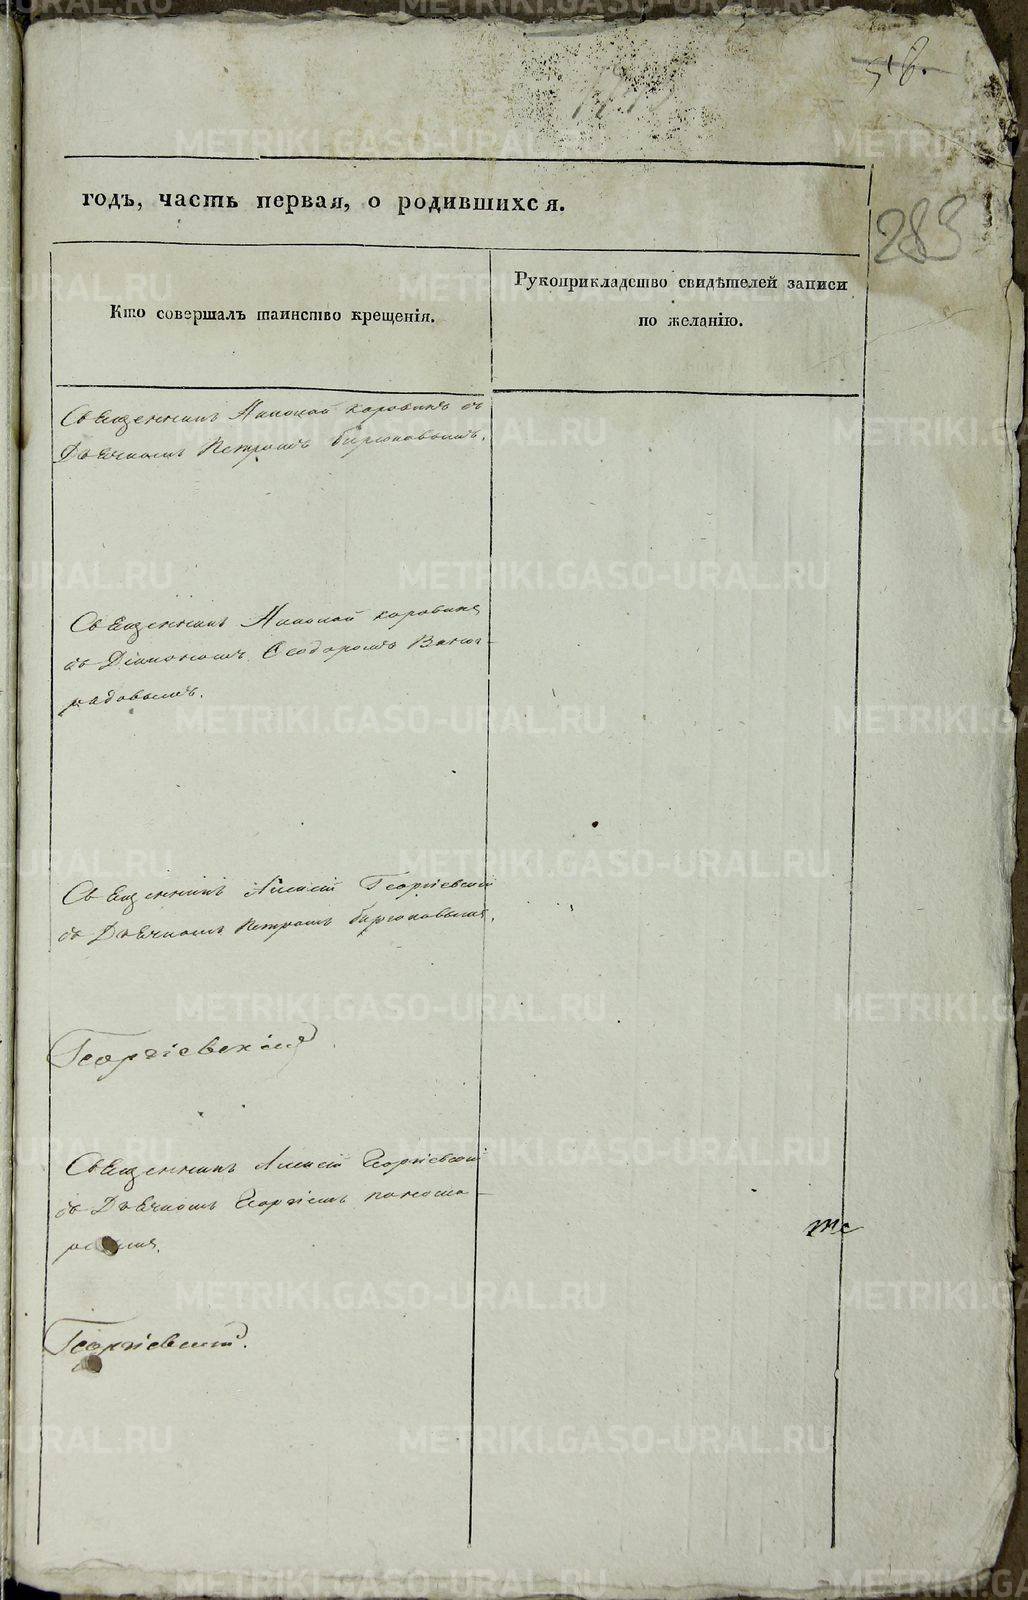 58.
283
годъ, часть первая, о родившихся.
Кто совершалъ таинство крещенія.
Рукоприкладство свидѣтелей записи
по желанію.
Священникъ Николай Коровинъ съ
Дьячкомъ Петромъ Бирюковымъ.
Священникъ Николай Коровинъ
съ Діакономъ Ѳеодоромъ Виног-
радовымъ.
Священникъ Алексій Георгіевскій
съ Дьячкомъ Петромъ Бирюковымъ.
Георгіевскій
Священникъ Алексій Георгіевскій
съ Дьячкомъ Георгіемъ
Георгіевскій.
METRIKI.GASO-URAL.RU